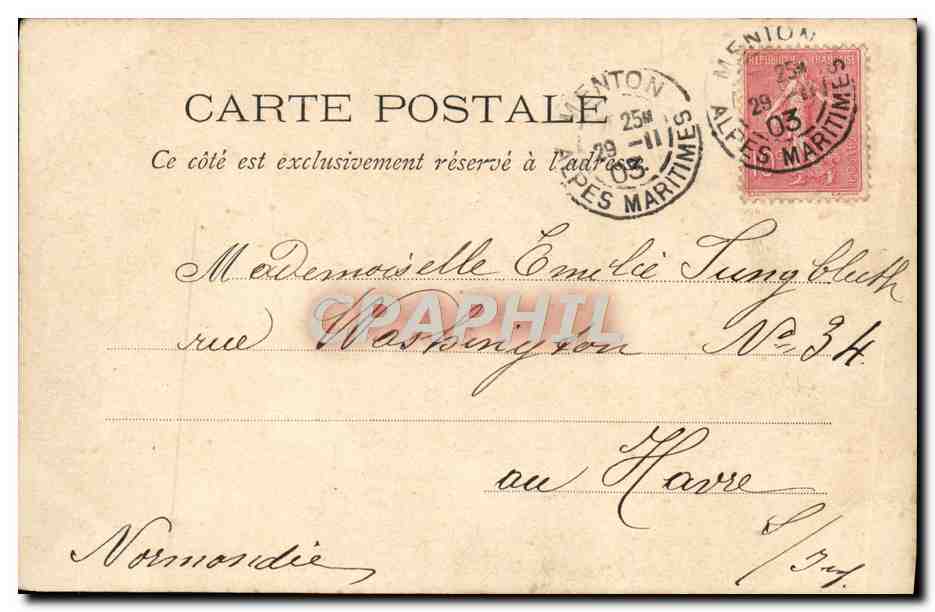 CARTE POSTALE
Ce côté est exclusivement réservé à l'adresse.
MENTON
25M
29 -11
03
ALPES MARITIMES
MENTON
25M
29 -11
03
ALPES MARITIMES
REPUBLIQUE FRANÇAISE
Mademoiselle Emilie Jungbluth
rue Washington No 34
CPAPHIL
au Havre
Normandie